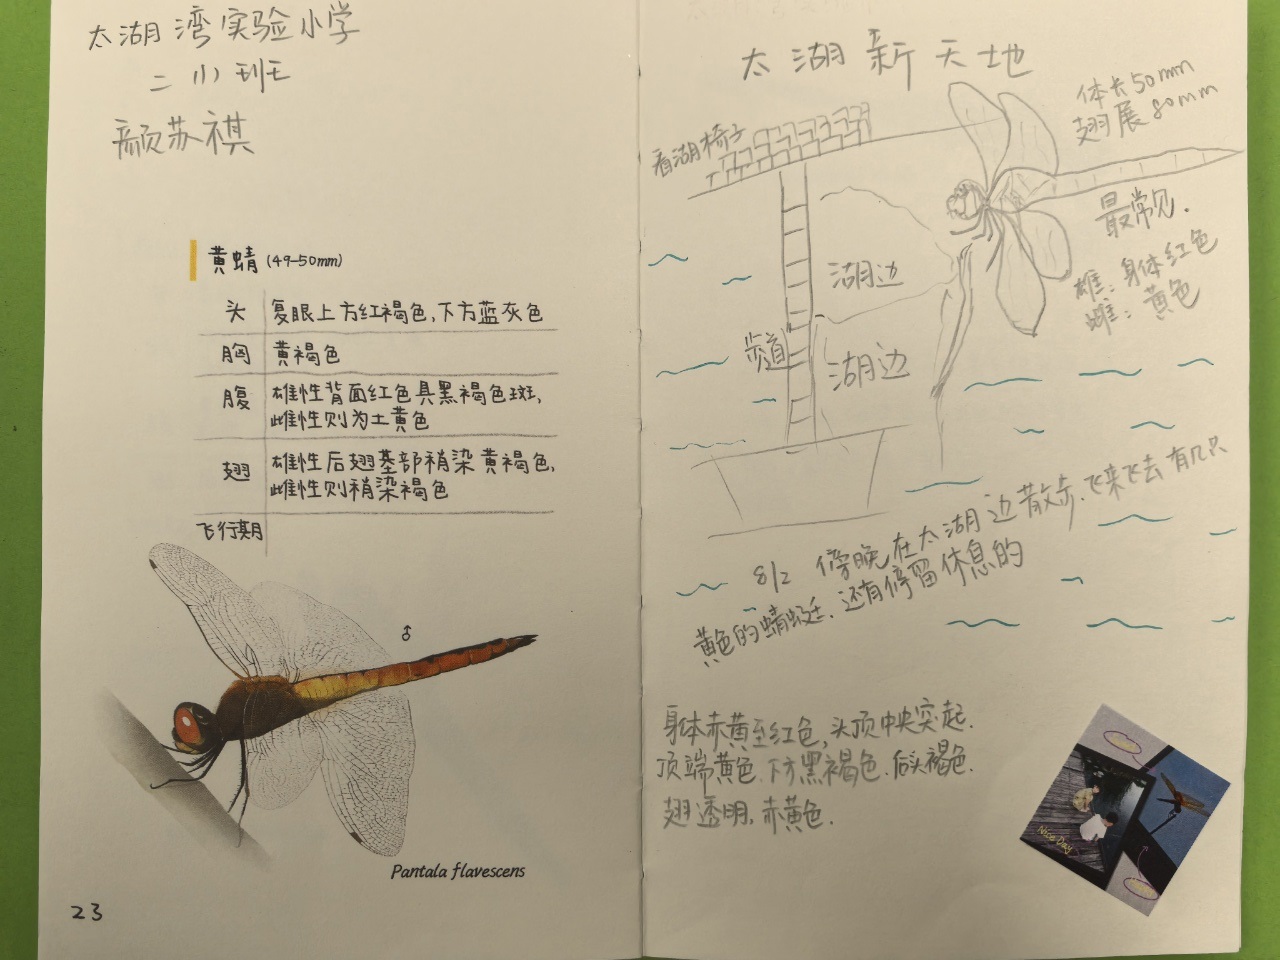 太湖湾实验小学
二(1)班
颜苏祺
黄蜻 (49-50mm)
头 复眼上方红褐色,下方蓝灰色
胸 黄褐色
腹 雄性背面红色具黑褐色斑,
雌性则为土黄色
翅 雄性后翅基部稍染黄褐色,
雌性则稍染褐色
飞行期
♂
Pantala flavescens
23
太湖新天地
体长50mm
翅展80mm
看湖椅子
最常见.
雄:身体红色
雌:黄色
湖边
步道
湖边
8/2 傍晚在太湖边散步.飞来飞去有几只
黄色的蜻蜓.还有停留休息的
身体赤黄至红色,头顶中央突起.
顶端黄色.下方黑褐色.后头褐色.
翅透明,赤黄色.
Nice Day